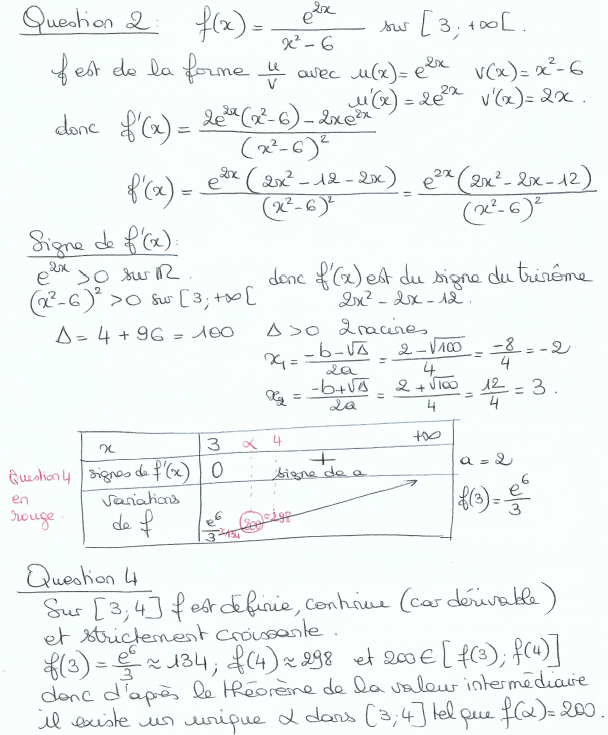 Question 2 : f(x) = e^{2x} / (x² - 6) sur [3 ; +∞[.
f est de la forme u/v avec u(x) = e^{2x} v(x) = x² - 6
u'(x) = 2e^{2x} v'(x) = 2x.
donc f'(x) = (2e^{2x}(x² - 6) - 2xe^{2x}) / (x² - 6)²
f'(x) = e^{2x}(2x² - 12 - 2x) / (x² - 6)² = e^{2x}(2x² - 2x - 12) / (x² - 6)²
Signe de f'(x) :
e^{2x} > 0 sur ℝ. donc f'(x) est du signe du trinôme
(x² - 6)² > 0 sur [3 ; +∞[ 2x² - 2x - 12.
Δ = 4 + 96 = 100 Δ > 0 2 racines
x₁ = (-b - √Δ) / 2a = (2 - √100) / 4 = -8/4 = -2
x₂ = (-b + √Δ) / 2a = (2 + √100) / 4 = 12/4 = 3.
x 3 α 4 +∞
signes de f'(x) 0 + signe de a
a = 2
Question 4
en
rouge.
variations
de f
e⁶/3 ≈ 134 200 ≈ 298
f(3) = e⁶/3
Question 4
Sur [3 ; 4] f est définie, continue (car dérivable)
et strictement croissante.
f(3) = e⁶/3 ≈ 134 ; f(4) ≈ 298 et 200 ∈ [f(3) ; f(4)]
donc d'après le théorème de la valeur intermédiaire
il existe un unique α dans [3 ; 4] tel que f(α) = 200.